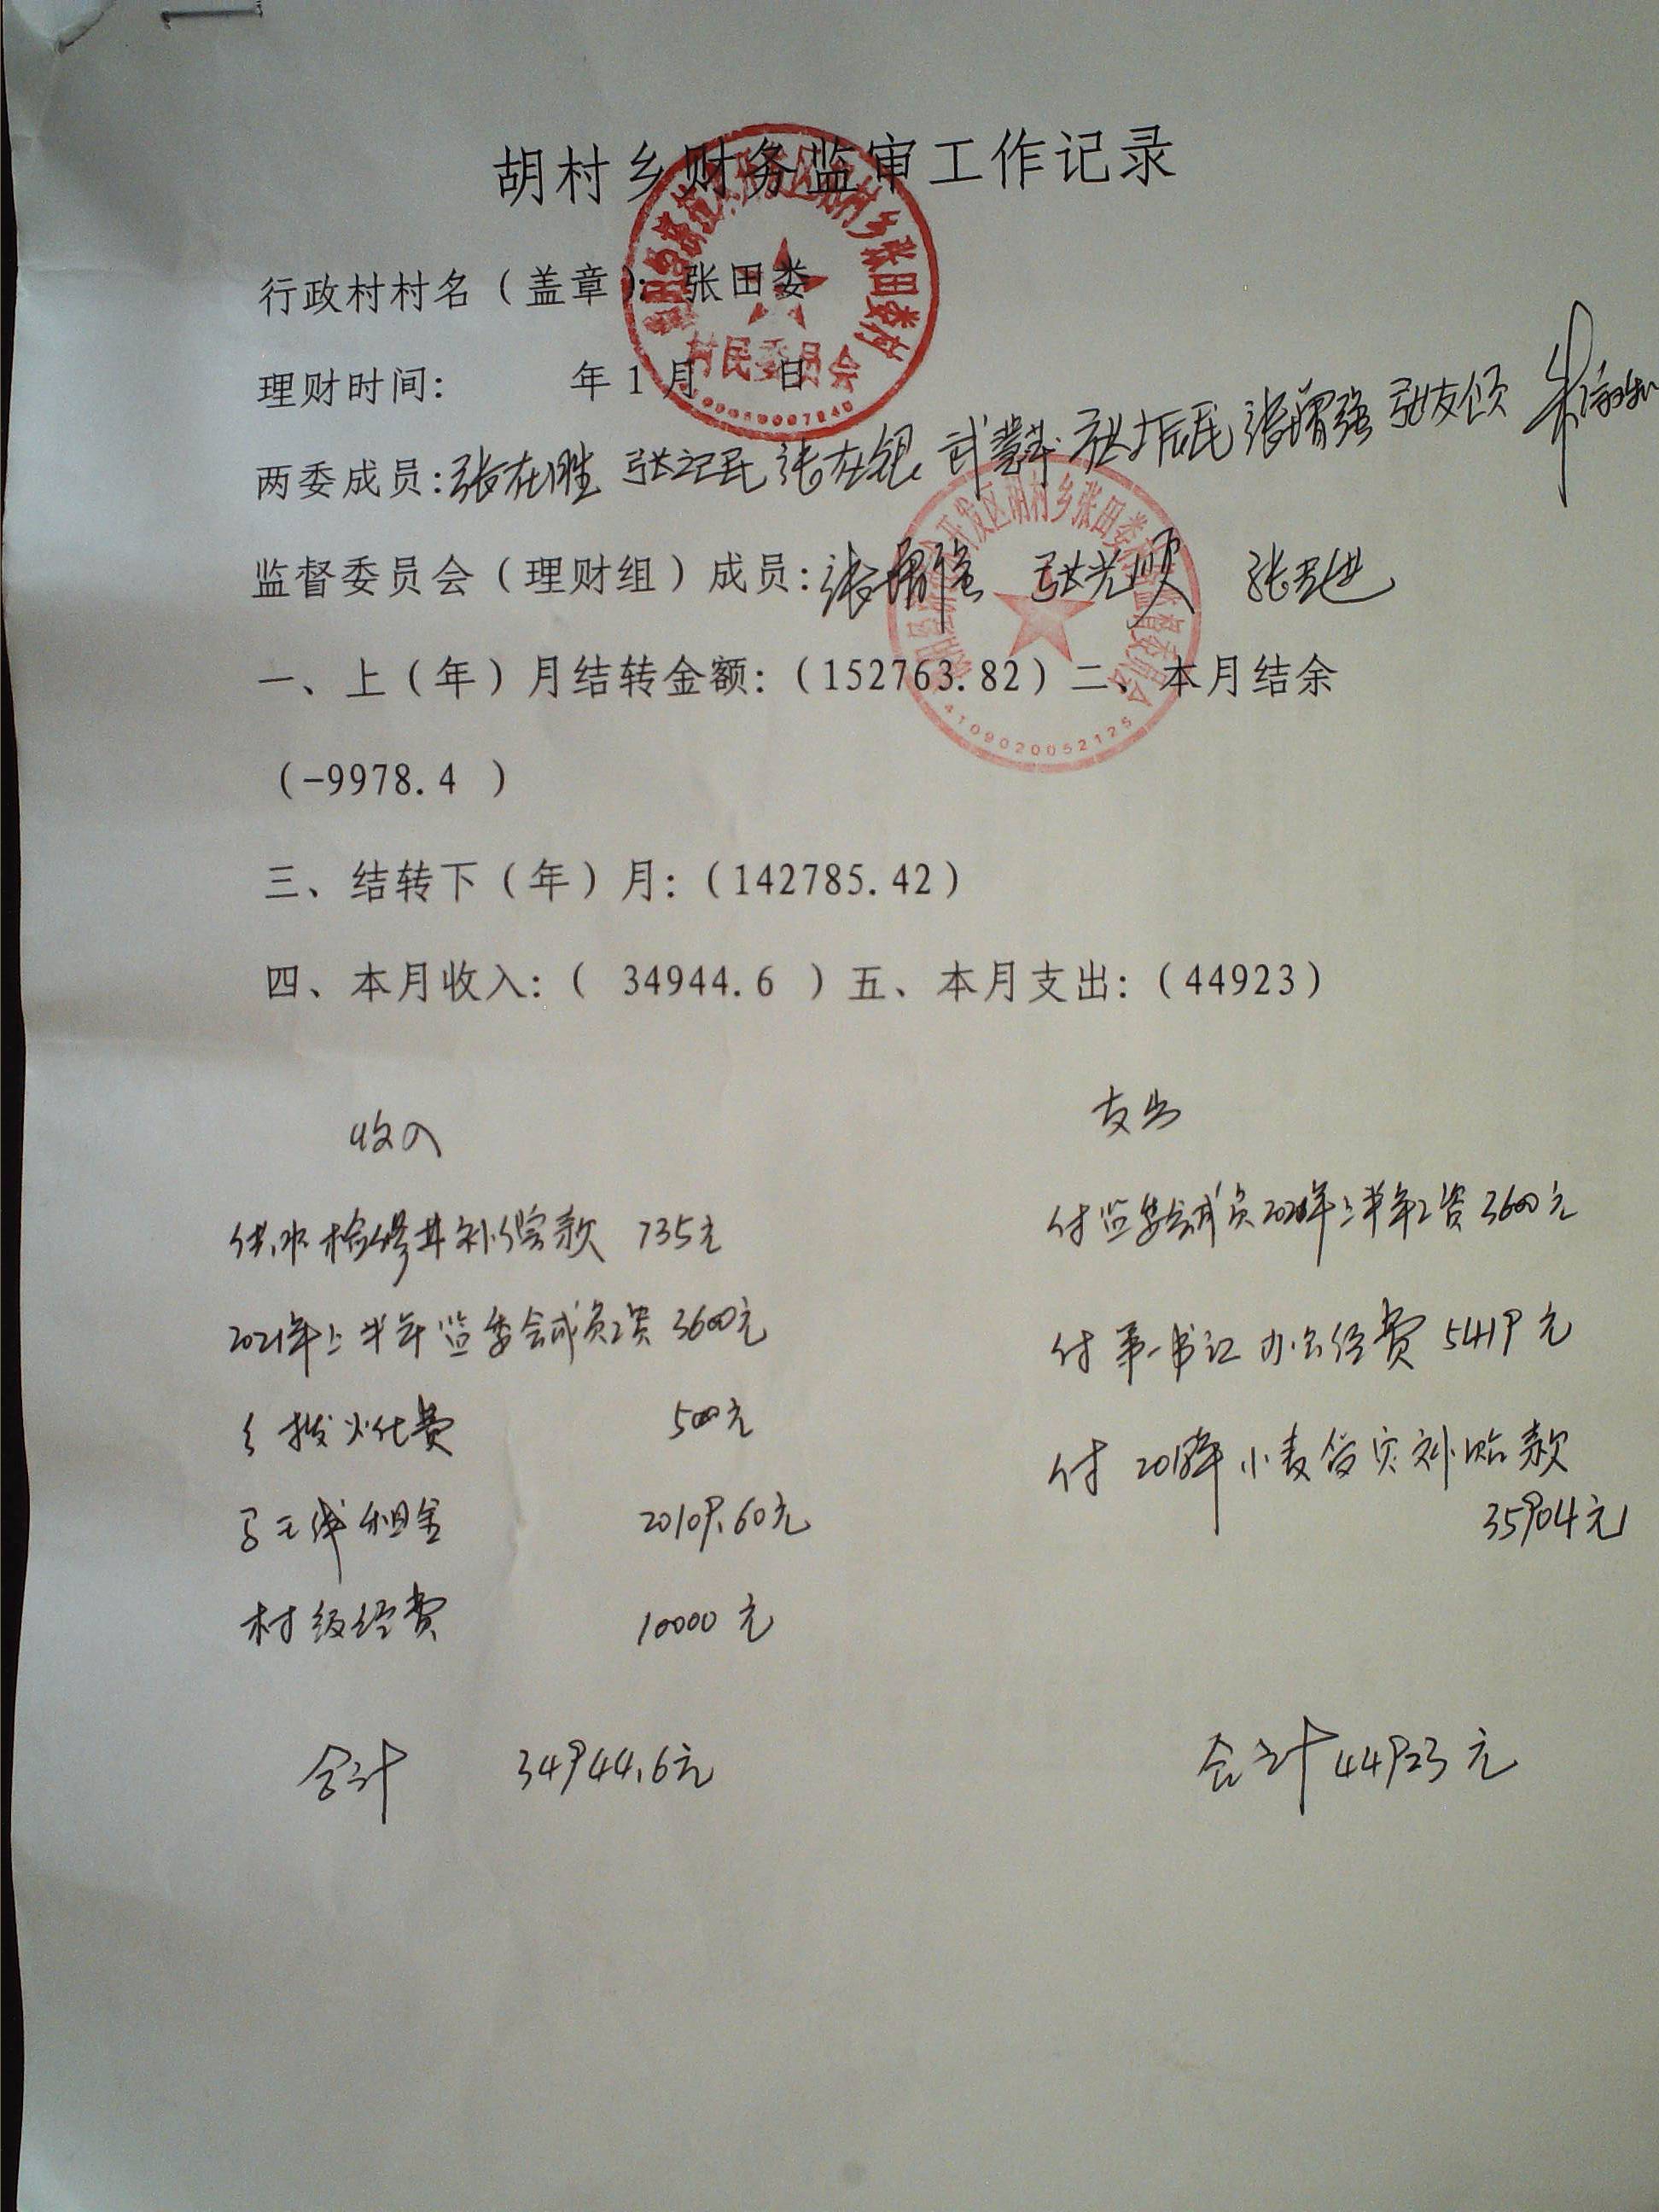 胡村乡财务监审工作记录
行政村村名（盖章）：张田娄
理财时间： 年1月 日
村民委员会
两委成员：张在胜 张记民 张在银 张振民 张增强
监督委员会（理财组）成员：张增强 张光顺
开发区胡村乡张田娄村监督委员会
4109020052125
一、上（年）月结转金额：（152763.82）二、本月结余
（-9978.4 ）
三、结转下（年）月：（142785.42）
四、本月收入：（ 34944.6 ）五、本月支出：（44923）
收入 支出
供水检修井补偿款 735元 付监委会成员2021年上半年工资3600元
2021年上半年监委会成员工资 3600元 付第一书记办公经费5419元
乡拨火化费 500元 付2018年小麦 补贴款
租金 20109.60元 35904元
村级经费 10000元
合计 34944.6元 合计44923元